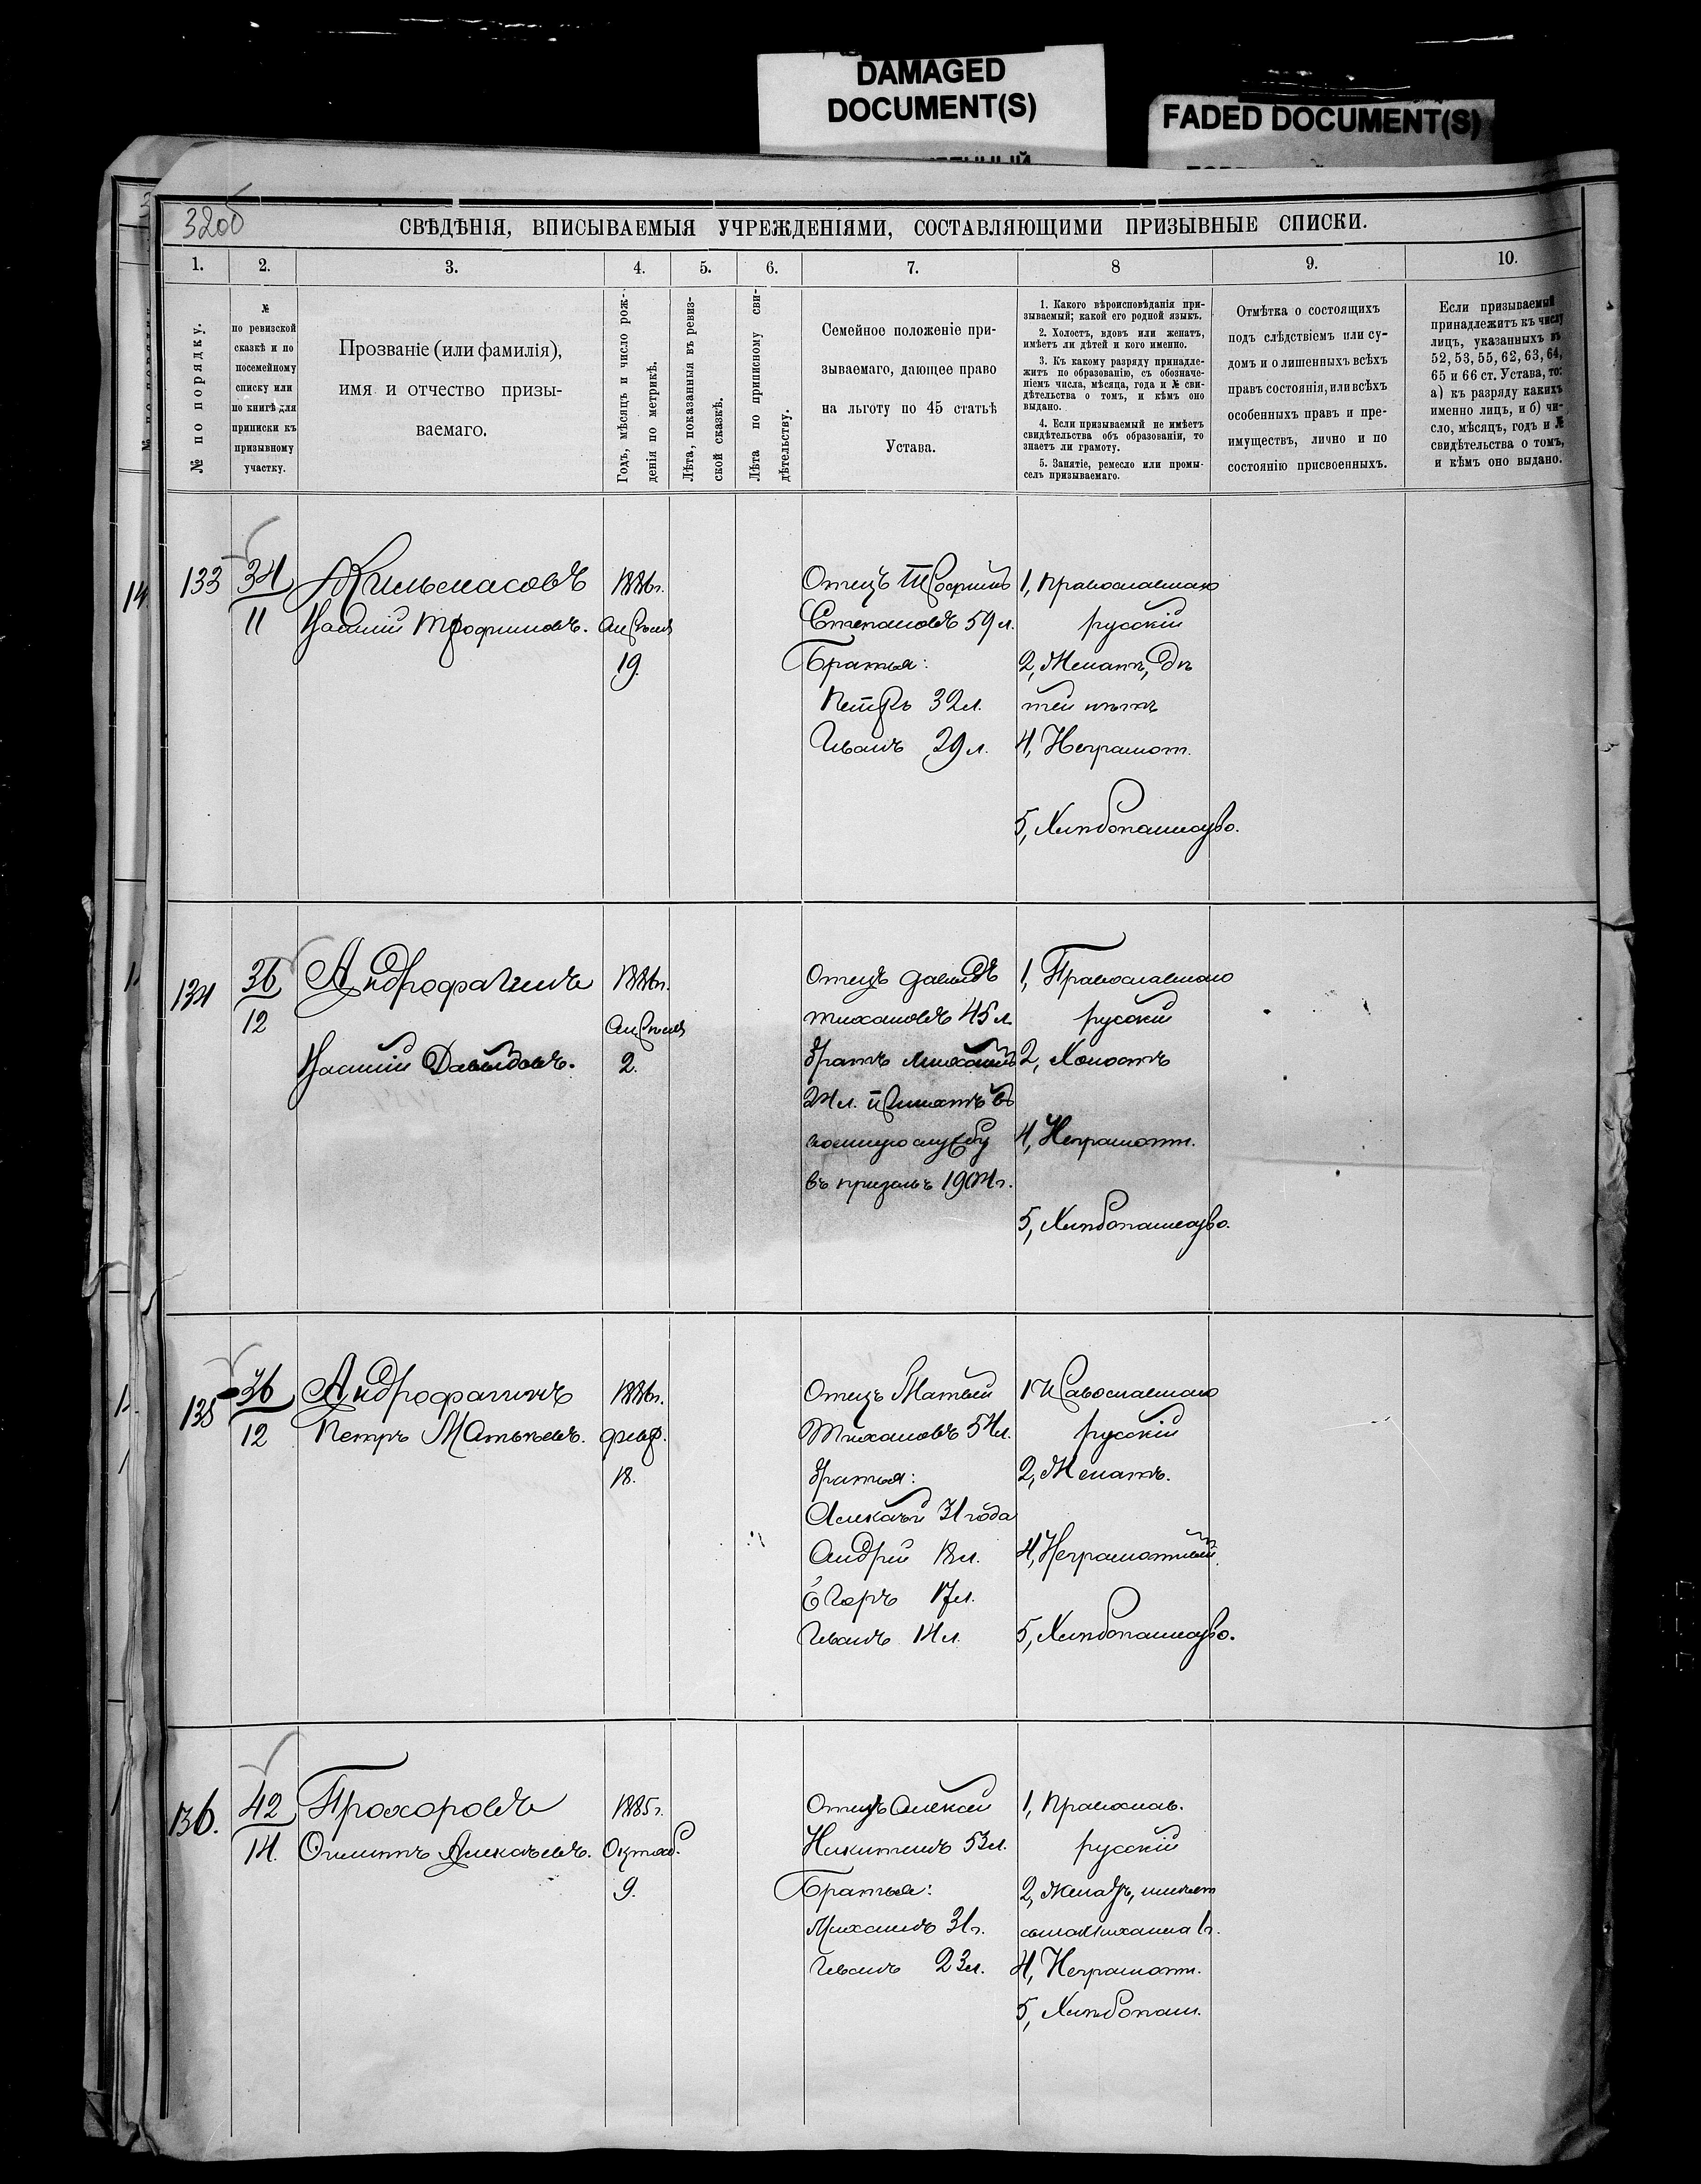 DAMAGED
DOCUMENT(S)
FADED DOCUMENT(S)
320об
СВѢДѢНІЯ, ВПИСЫВАЕМЫЯ УЧРЕЖДЕНІЯМИ, СОСТАВЛЯЮЩИМИ ПРИЗЫВНЫЕ СПИСКИ.
1. 2. 3. 4. 5. 6. 7. 8 9. 10.
№ по порядку.
№
по ревизской
сказкѣ и по
посемейному
списку или
по книгѣ для
приписки къ
призывному
участку.
Прозваніе (или фамилія),
имя и отчество призы-
ваемаго.
Годъ, мѣсяцъ и число рож-
денія по метрикѣ.
Лѣта, показанныя въ ревиз-
ской сказкѣ.
Лѣта по приписному сви-
дѣтельству.
Семейное положеніе при-
зываемаго, дающее право
на льготу по 45 статьѣ
Устава.
1. Какого вѣроисповѣданія при-
зываемый; какой его родной языкъ.
2. Холостъ, вдовъ или женатъ,
имѣетъ ли дѣтей и кого именно.
3. Къ какому разряду принадле-
житъ по образованію, съ обозначе-
ніемъ числа, мѣсяца, года и № сви-
дѣтельства о томъ, и кѣмъ оно
выдано.
4. Если призываемый не имѣетъ
свидѣтельства объ образованіи, то
знаетъ ли грамоту.
5. Занятіе, ремесло или промы-
селъ призываемаго.
Отмѣтка о состоящихъ
подъ слѣдствіемъ или су-
домъ и о лишенныхъ всѣхъ
правъ состоянія, или всѣхъ
особенныхъ правъ и пре-
имуществъ, лично и по
состоянію присвоенныхъ.
Если призываемый
принадлежитъ къ числу
лицъ, указанныхъ въ
52, 53, 55, 62, 63, 64,
65 и 66 ст. Устава, то:
а) къ разряду какихъ
именно лицъ, и б) чи-
сло, мѣсяцъ, годъ и №
свидѣтельства о томъ,
и кѣмъ оно выдано.
133
34
11
Кильмасовъ
Василій Трофимовъ.
1886г.
Апрѣля
19.
Отецъ Трофимъ
Степановъ 59 л.
Братья:
Петръ 32л.
Иванъ 29 л.
1, Православнаго
русскій
2, Женатъ, дѣ
тей нѣтъ
4, Неграмот.
5, Хлѣбопашество.
134
36
12
Андрофагинъ
Василій Давыдовъ.
1886г.
Апрѣля
2.
Отецъ Давыдъ
Тихановъ 45 л.
братъ Михаилъ
24л. принятъ въ
военную службу
въ призывъ 1904г.
1, Православнаго
русскій
2, Холостъ
4, Неграмотн.
5, Хлѣбопашество.
135
36
12
Андрофагинъ
Петръ Матвѣевъ.
1886г.
февр.
18.
Отецъ Матвѣй
Тихановъ 54л.
братья:
Алексѣй 31 года
Андрей 18л.
Егоръ 17л.
Иванъ 14л.
1 Православнаго
русскій
2, Женатъ.
4, Неграмотный.
5, Хлѣбопашество.
136.
42
14.
Прохоровъ
Филиппъ Алексѣевъ.
1885г.
Октяб.
9.
Отецъ Алексѣй
Никитинъ 53л.
Братья:
Михаилъ 31г.
Иванъ 23л.
1, Православ.
русскій
2, Женатъ, имѣетъ
сына Михаила 1г.
4, Неграмотн.
5, Хлѣбопаш.